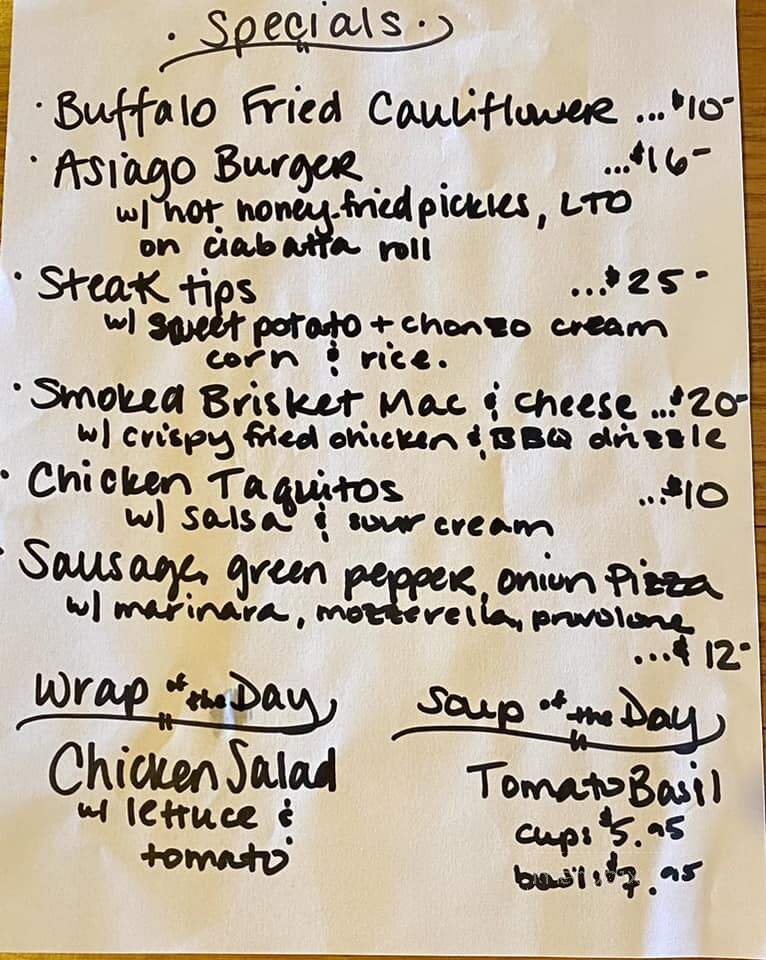 · Specials ·
· Buffalo Fried Cauliflower ...$10-
· Asiago Burger ...$16-
w/ hot honey fried pickles, LTO
on ciabatta roll
· Steak tips ...$25-
w/ sweet potato + chorizo cream
corn & rice.
· Smoked Brisket Mac & cheese ...$20-
w/ crispy fried chicken & BBQ drizzle
· Chicken Taquitos ...$10
w/ salsa & sour cream
· Sausage, green pepper, onion Pizza
w/ marinara, mozzerella, provolone
...$12-
Wrap of the Day
Chicken Salad
w/ lettuce &
tomato
Soup of the Day
Tomato Basil
cup: $5.95
$7.95